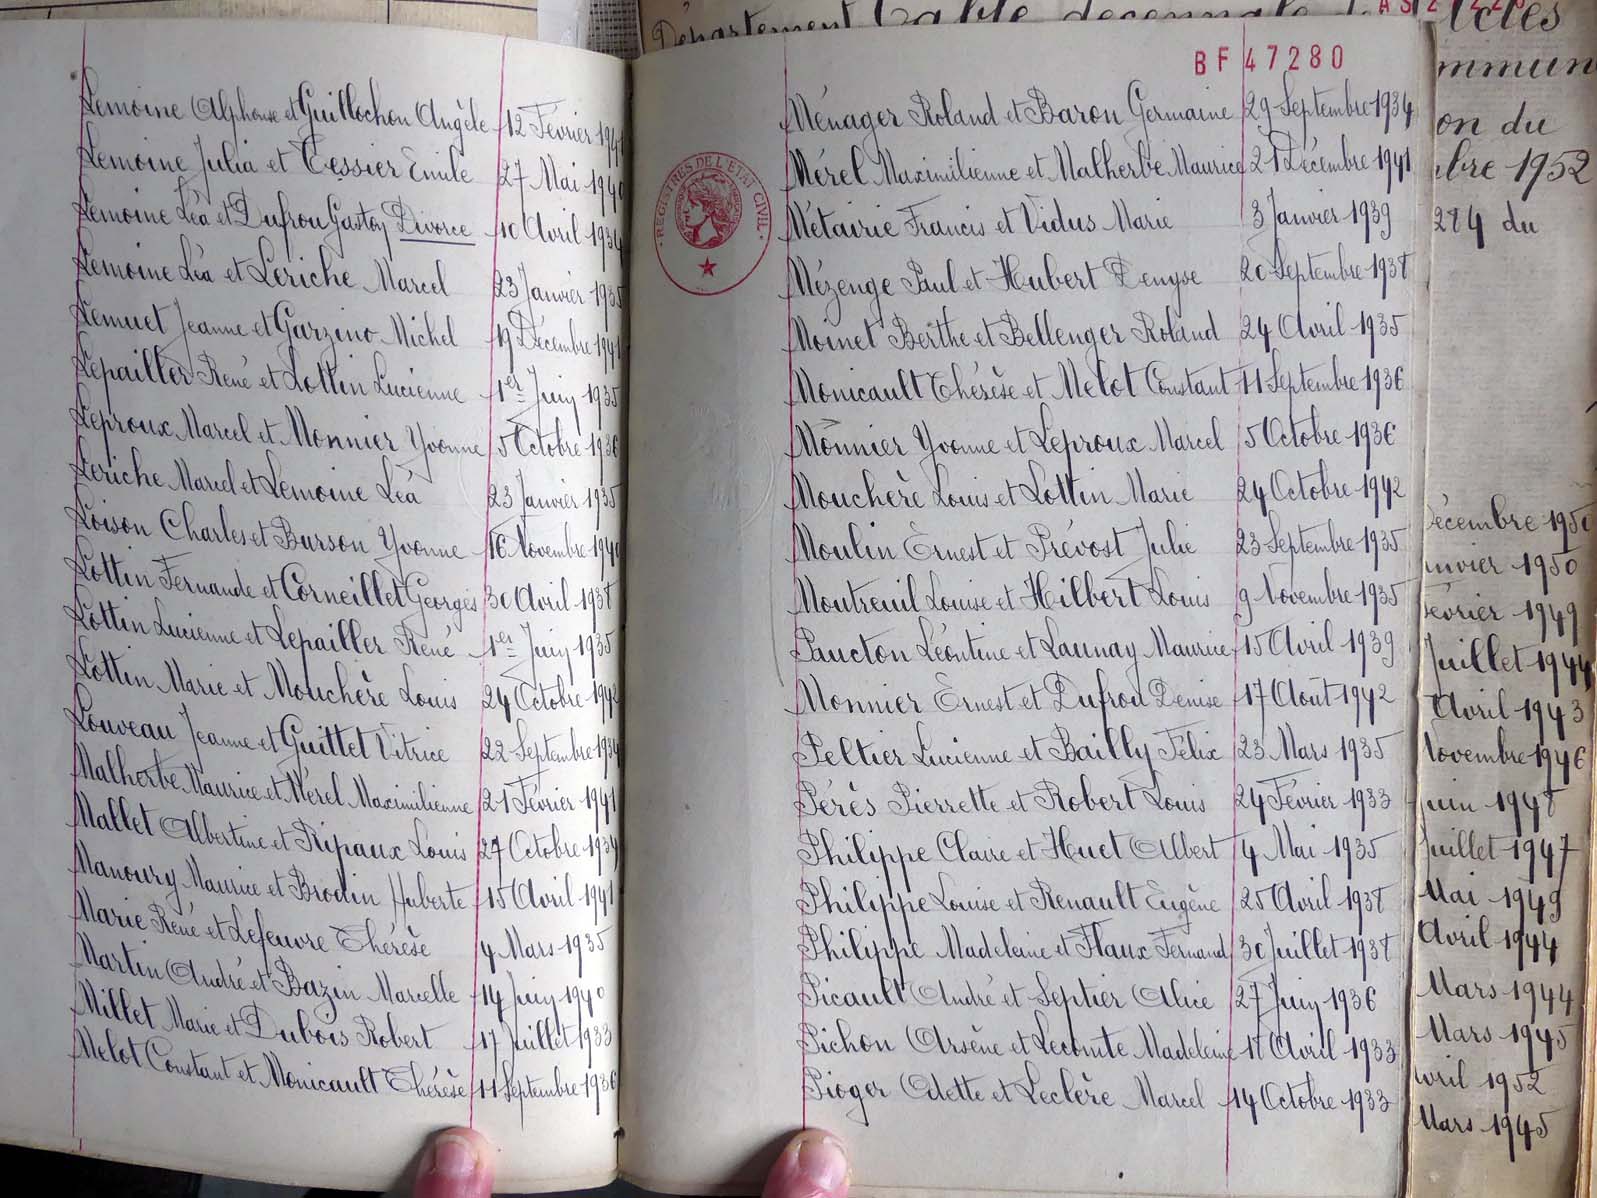 Lemoine Alphonse et Guillochon Angèle 12 Février 1941
Lemoine Julia et Tessier Emile 27 Mai 1940
Lemoine Léa et Dufrou Gaston Divorce 10 Avril 1934
Lemoine Léa et Leriche Marcel 23 Janvier 1935
Lemuet Jeanne et Garzino Michel 19 Décembre 1941
Lepailler René et Lottin Lucienne 1er Juin 1935
Leproux Marcel et Monnier Yvonne 5 Octobre 1936
Leriche Marcel et Lemoine Léa 23 Janvier 1935
Loison Charles et Burson Yvonne 16 Novembre 1940
Lottin Fernande et Corneillet Georges 30 Avril 1938
Lottin Lucienne et Lepailler René 1er Juin 1935
Lottin Marie et Mouchère Louis 24 Octobre 1942
Louveau Jeanne et Guittet Vitrice 22 Septembre 1934
Malherbe Maurice et Mérel Maximilienne 21 Février 1941
Mallet Albertine et Ripaux Louis 27 Octobre 1934
Manoury Maurice et Brodin Huberte 15 Avril 1941
Marie René et Lefeuvre Thérèse 4 Mars 1935
Martin André et Bazin Marcelle 14 Juin 1940
Millet Marie et Dubois Robert 17 Juillet 1933
Melot Constant et Monicault Thérèse 11 Septembre 1936
REGISTRES DE L'ETAT CIVIL
BF 47280
Ménager Roland et Baron Germaine 29 Septembre 1934
Mérel Maximilienne et Malherbe Maurice 21 Décembre 1941
Métairie Francis et Vidus Marie 3 Janvier 1939
Mézenge Paul et Hubert Denyse 20 Septembre 1938
Moinet Berthe et Bellenger Roland 24 Avril 1935
Monicault Thérèse et Melot Constant 11 Septembre 1936
Monnier Yvonne et Leproux Marcel 5 Octobre 1936
Mouchère Louis et Lottin Marie 24 Octobre 1942
Moulin Ernest et Prévost Julie 23 Septembre 1935
Montreuil Louise et Hilbert Louis 9 Novembre 1935
Paucton Léontine et Launay Maurice 15 Avril 1939
Monnier Ernest et Dufrou Denise 17 Août 1942
Peltier Lucienne et Bailly Félix 23 Mars 1935
Pérès Pierrette et Robert Louis 24 Février 1933
Philippe Claire et Huet Albert 4 Mai 1935
Philippe Louise et Renault Eugène 25 Avril 1938
Philippe Madeleine et Flaux Fernand 30 Juillet 1938
Picault André et Septier Alice 27 Juin 1936
Pichon Arsène et Lecomte Madeleine 18 Avril 1933
Pioger Odette et Leclère Marcel 14 Octobre 1933
Département Table décennale Actes
mmun
on du
bre 1952
284 du
écembre 1950
nvier 1950
évrier 1949
Juillet 1944
Avril 1943
ovembre 1946
uin 1948
Juillet 1947
Mai 1949
Avril 1944
Mars 1944
Mars 1945
vril 1952
Mars 1945